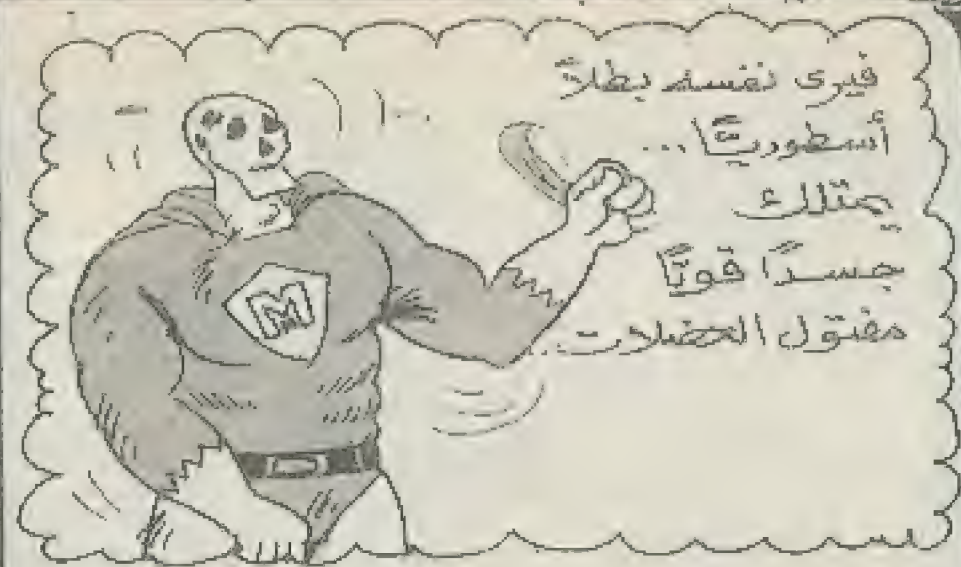 فيرى نفسه بطلاً
أسطوريًّا ...
يمتلك
جسدًا قويًّا
مفتول العضلات...
M